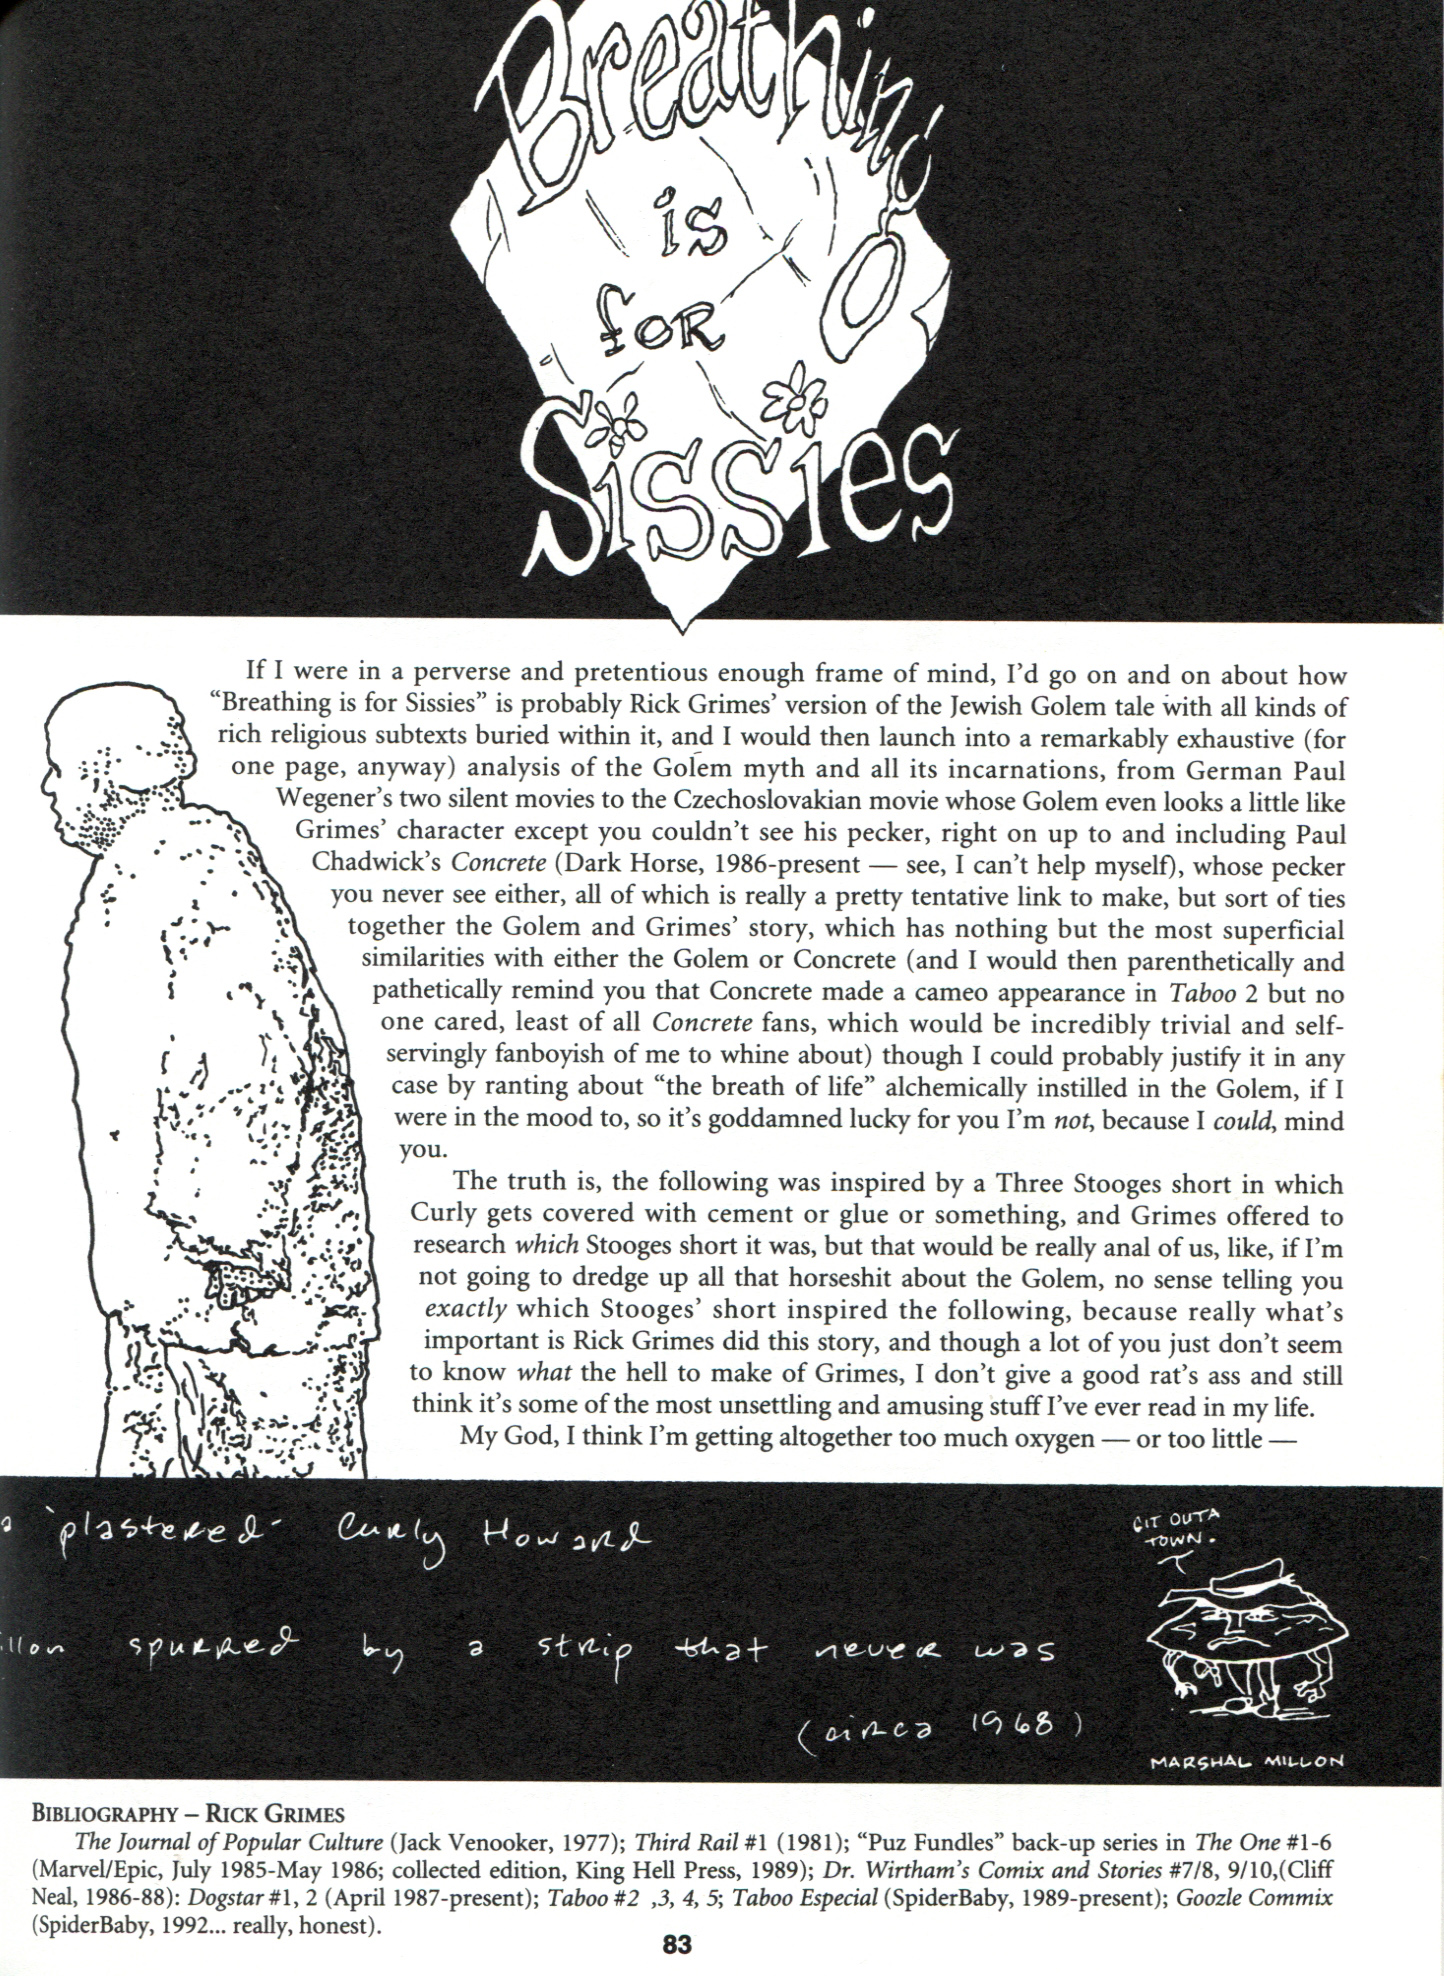 Breathing
is
for
Sissies
If I were in a perverse and pretentious enough frame of mind, I'd go on and on about how
“Breathing is for Sissies” is probably Rick Grimes' version of the Jewish Golem tale with all kinds of
rich religious subtexts buried within it, and I would then launch into a remarkably exhaustive (for
one page, anyway) analysis of the Golem myth and all its incarnations, from German Paul
Wegener's two silent movies to the Czechoslovakian movie whose Golem even looks a little like
Grimes' character except you couldn't see his pecker, right on up to and including Paul
Chadwick's Concrete (Dark Horse, 1986-present — see, I can't help myself), whose pecker
you never see either, all of which is really a pretty tentative link to make, but sort of ties
together the Golem and Grimes' story, which has nothing but the most superficial
similarities with either the Golem or Concrete (and I would then parenthetically and
pathetically remind you that Concrete made a cameo appearance in Taboo 2 but no
one cared, least of all Concrete fans, which would be incredibly trivial and self-
servingly fanboyish of me to whine about) though I could probably justify it in any
case by ranting about “the breath of life” alchemically instilled in the Golem, if I
were in the mood to, so it's goddamned lucky for you I'm not, because I could, mind
you.
The truth is, the following was inspired by a Three Stooges short in which
Curly gets covered with cement or glue or something, and Grimes offered to
research which Stooges short it was, but that would be really anal of us, like, if I'm
not going to dredge up all that horseshit about the Golem, no sense telling you
exactly which Stooges' short inspired the following, because really what's
important is Rick Grimes did this story, and though a lot of you just don't seem
to know what the hell to make of Grimes, I don't give a good rat's ass and still
think it's some of the most unsettling and amusing stuff I've ever read in my life.
My God, I think I'm getting altogether too much oxygen — or too little —
a 'plastered' Curly Howard
GIT OUTA
TOWN.
illon spurred by a strip that never was
(circa 1968)
MARSHAL MILLON
BIBLIOGRAPHY – RICK GRIMES
The Journal of Popular Culture (Jack Venooker, 1977); Third Rail #1 (1981); “Puz Fundles” back-up series in The One #1-6
(Marvel/Epic, July 1985-May 1986; collected edition, King Hell Press, 1989); Dr. Wirtham's Comix and Stories #7/8, 9/10,(Cliff
Neal, 1986-88): Dogstar #1, 2 (April 1987-present); Taboo #2 ,3, 4, 5; Taboo Especial (SpiderBaby, 1989-present); Goozle Commix
(SpiderBaby, 1992... really, honest).
83